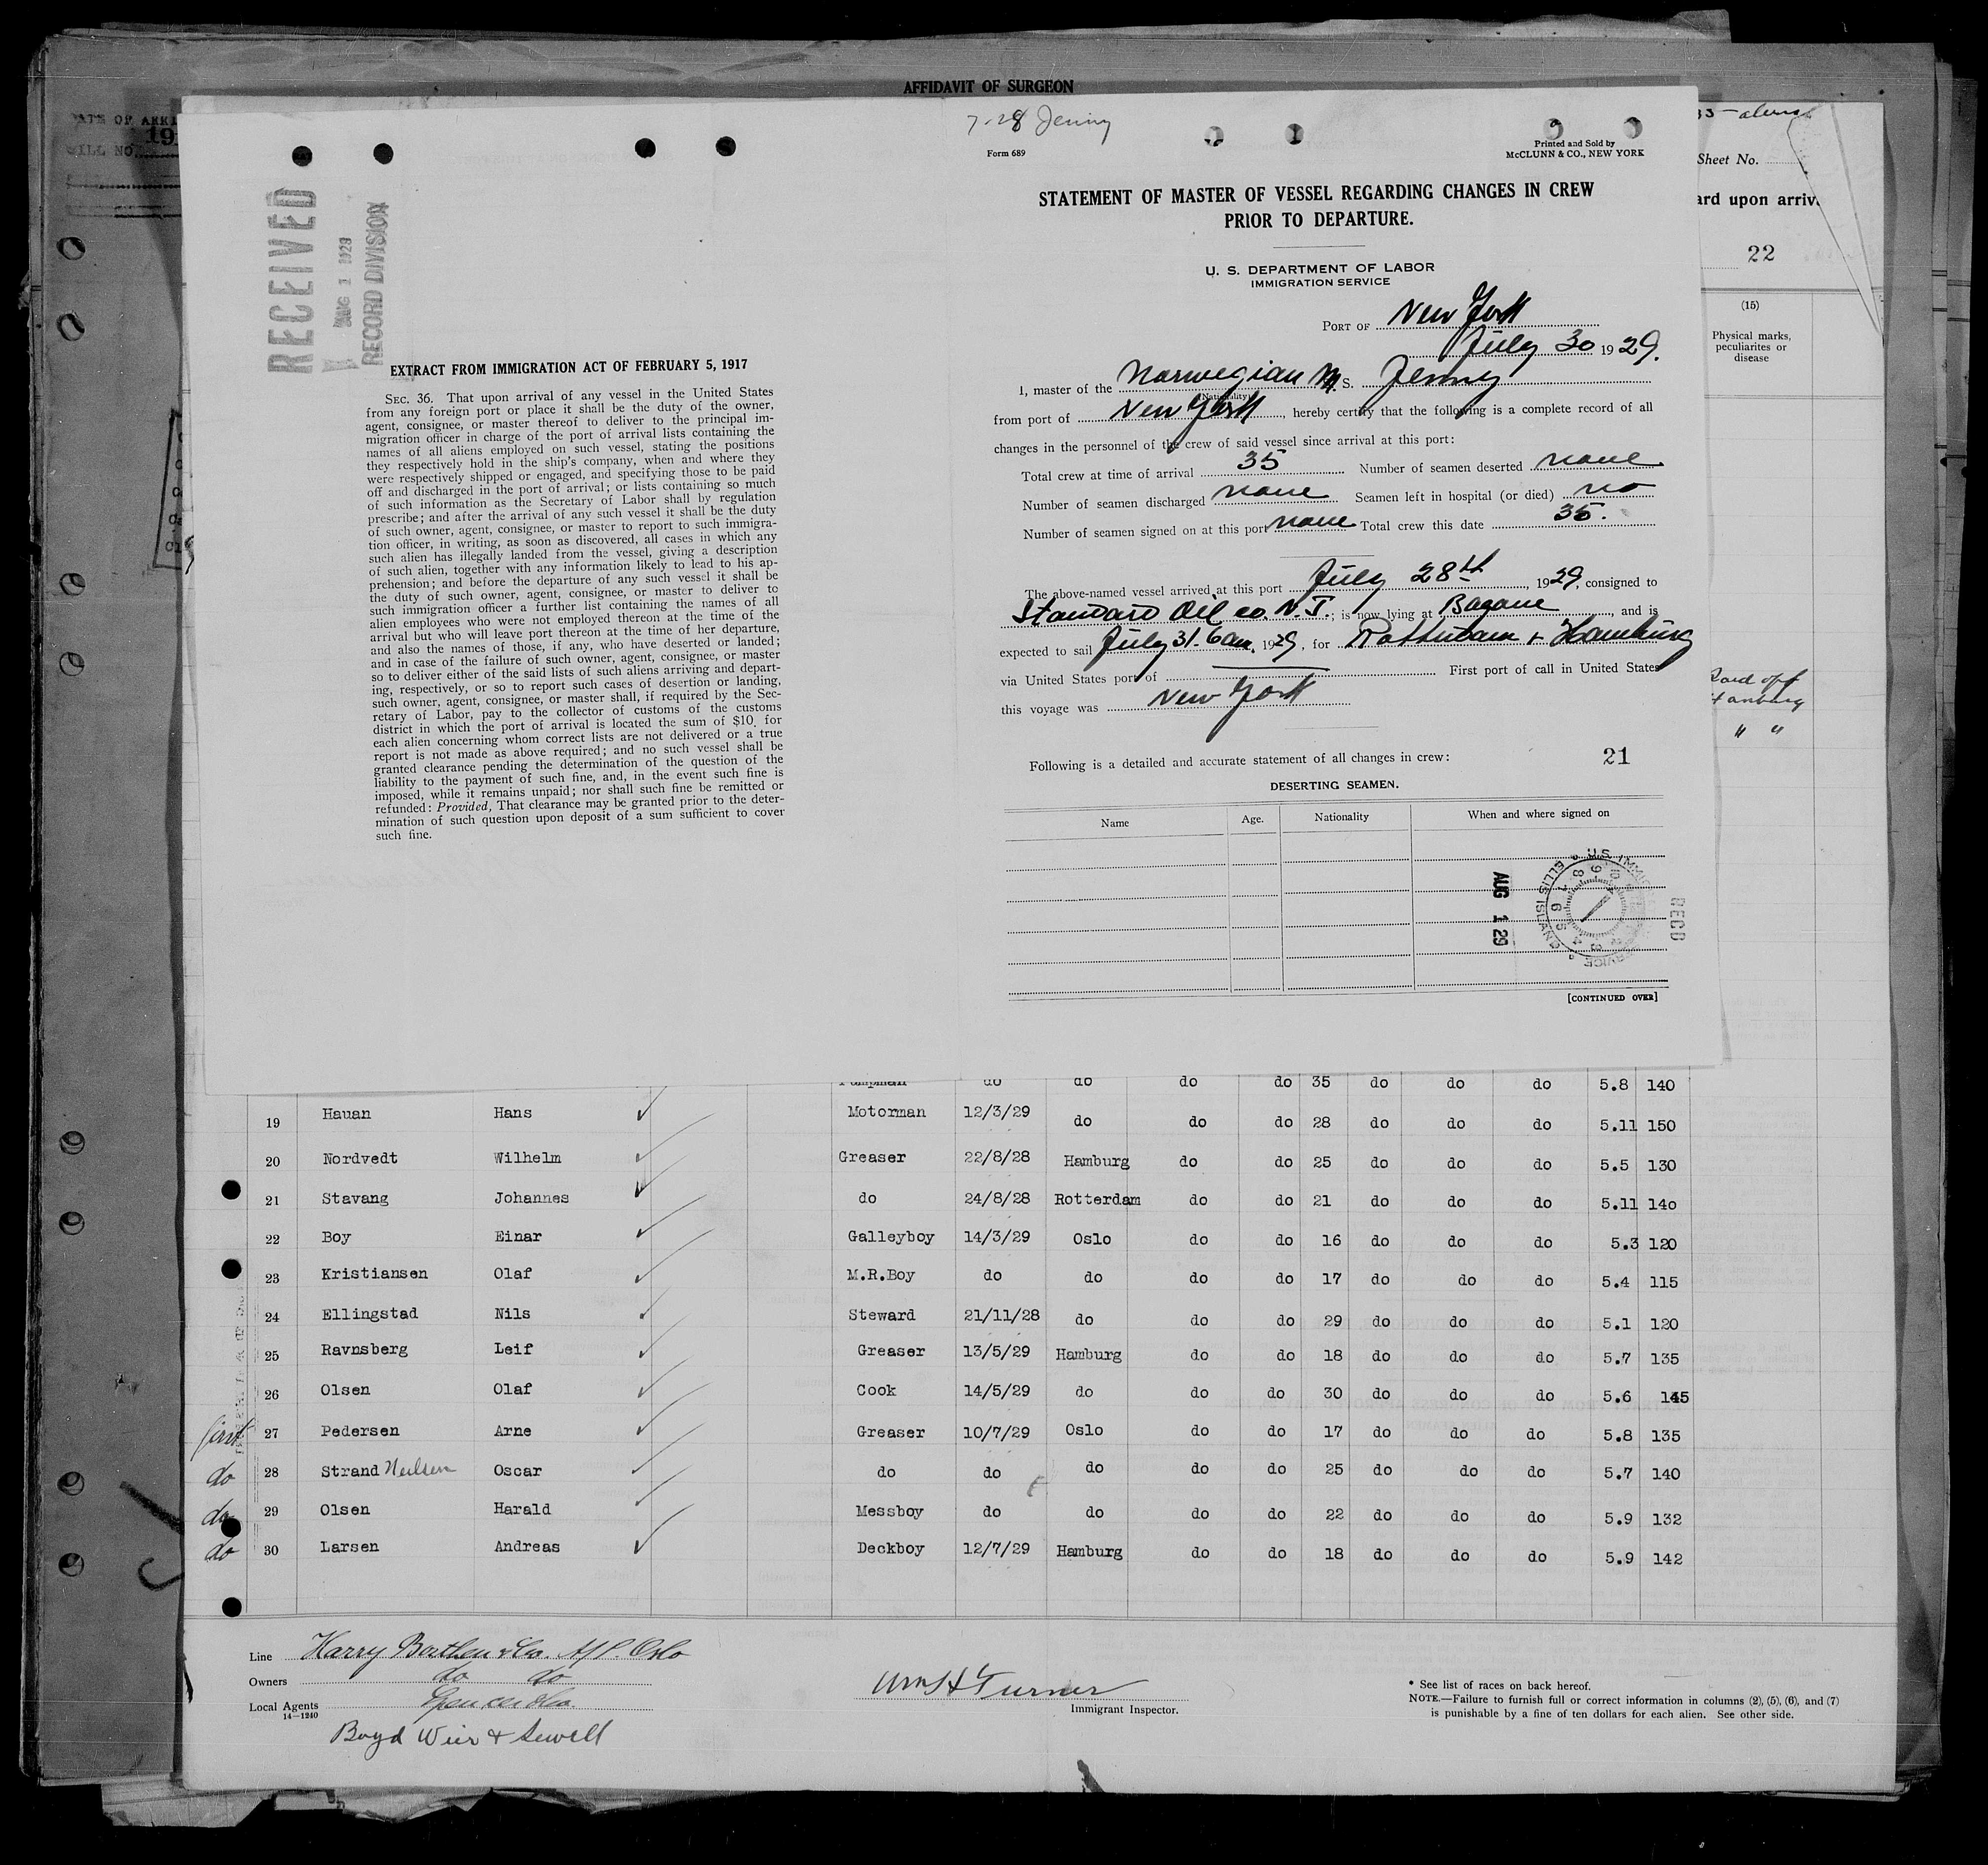 AFFIDAVIT OF SURGEON
7-28 Jenny
Form 689
Printed and Sold by
McCLUNN & CO., NEW YORK
STATEMENT OF MASTER OF VESSEL REGARDING CHANGES IN CREW
PRIOR TO DEPARTURE.
U. S. DEPARTMENT OF LABOR
IMMIGRATION SERVICE
PORT OF New York
July 30 1929.
I, master of the Norwegian M. S. Jenny
(Nationality)
from port of New York, hereby certify that the following is a complete record of all
changes in the personnel of the crew of said vessel since arrival at this port:
Total crew at time of arrival 35 Number of seamen deserted none
Number of seamen discharged none Seamen left in hospital (or died) no
Number of seamen signed on at this port none Total crew this date 35.
The above-named vessel arrived at this port July 28th, 1929. consigned to
Standard Oil Co. N.J.; is now lying at, and is
expected to sail July 31. 6 am. 1929, for Rotterdam + Hamburg
via United States port of First port of call in United States
this voyage was New York
Following is a detailed and accurate statement of all changes in crew: 21
DESERTING SEAMEN.
Name Age. Nationality When and where signed on
AUG 1 29
U.S. IMMIG SERVICE ELLIS ISLAND
RECD
[CONTINUED OVER]
RECEIVED
AUG 1 1929
RECORD DIVISION
EXTRACT FROM IMMIGRATION ACT OF FEBRUARY 5, 1917
SEC. 36. That upon arrival of any vessel in the United States
from any foreign port or place it shall be the duty of the owner,
agent, consignee, or master thereof to deliver to the principal im-
migration officer in charge of the port of arrival lists containing the
names of all aliens employed on such vessel, stating the positions
they respectively hold in the ship's company, when and where they
were respectively shipped or engaged, and specifying those to be paid
off and discharged in the port of arrival; or lists containing so much
of such information as the Secretary of Labor shall by regulation
prescribe; and after the arrival of any such vessel it shall be the duty
of such owner, agent, consignee, or master to report to such immigra-
tion officer, in writing, as soon as discovered, all cases in which any
such alien has illegally landed from the vessel, giving a description
of such alien, together with any information likely to lead to his ap-
prehension; and before the departure of any such vessel it shall be
the duty of such owner, agent, consignee, or master to deliver to
such immigration officer a further list containing the names of all
alien employees who were not employed thereon at the time of the
arrival but who will leave port thereon at the time of her departure,
and also the names of those, if any, who have deserted or landed;
and in case of the failure of such owner, agent, consignee, or master
so to deliver either of the said lists of such aliens arriving and depart-
ing, respectively, or so to report such cases of desertion or landing,
such owner, agent, consignee, or master shall, if required by the Sec-
retary of Labor, pay to the collector of customs of the customs
district in which the port of arrival is located the sum of $10 for
each alien concerning whom correct lists are not delivered or a true
report is not made as above required; and no such vessel shall be
granted clearance pending the determination of the question of the
liability to the payment of such fine, and, in the event such fine is
imposed, while it remains unpaid; nor shall such fine be remitted or
refunded: Provided, That clearance may be granted prior to the deter-
mination of such question upon deposit of a sum sufficient to cover
such fine.
Sheet No.
ard upon arriv
22
(15)
Physical marks,
peculiarites or
disease
Paid off
Hamburg
" "
Pumpman do do do do 35 do do do 5.8 140
19 Hauan Hans Motorman 12/3/29 do do do 28 do do do 5.11 150
20 Nordvedt Wilhelm Greaser 22/8/28 Hamburg do do 25 do do do 5.5 130
21 Stavang Johannes do 24/8/28 Rotterdam do do 21 do do do 5.11 14o
22 Boy Einar Galleyboy 14/3/29 Oslo do do 16 do do do 5.3 120
23 Kristiansen Olaf M.R.Boy do do do do 17 do do do 5.4 115
24 Ellingstad Nils Steward 21/11/28 do do do 29 do do do 5.1 120
25 Ravnsberg Leif Greaser 13/5/29 Hamburg do do 18 do do do 5.7 135
26 Olsen Olaf Cook 14/5/29 do do do 30 do do do 5.6 145
first 27 Pedersen Arne Greaser 10/7/29 Oslo do do 17 do do do 5.8 135
do 28 Strand Neilsen Oscar do do do do do 25 do do do 5.7 140
do 29 Olsen Harald Messboy do do do do 22 do do do 5.9 132
do 30 Larsen Andreas Deckboy 12/7/29 Hamburg do do 18 do do do 5.9 142
Line Harry Borthen & Co. A/S. Oslo
Owners do do
Local Agents
14—1240
Boyd Weir & Sewell
Wm H Turner
Immigrant Inspector.
* See list of races on back hereof.
NOTE.—Failure to furnish full or correct information in columns (2), (5), (6), and (7)
is punishable by a fine of ten dollars for each alien. See other side.